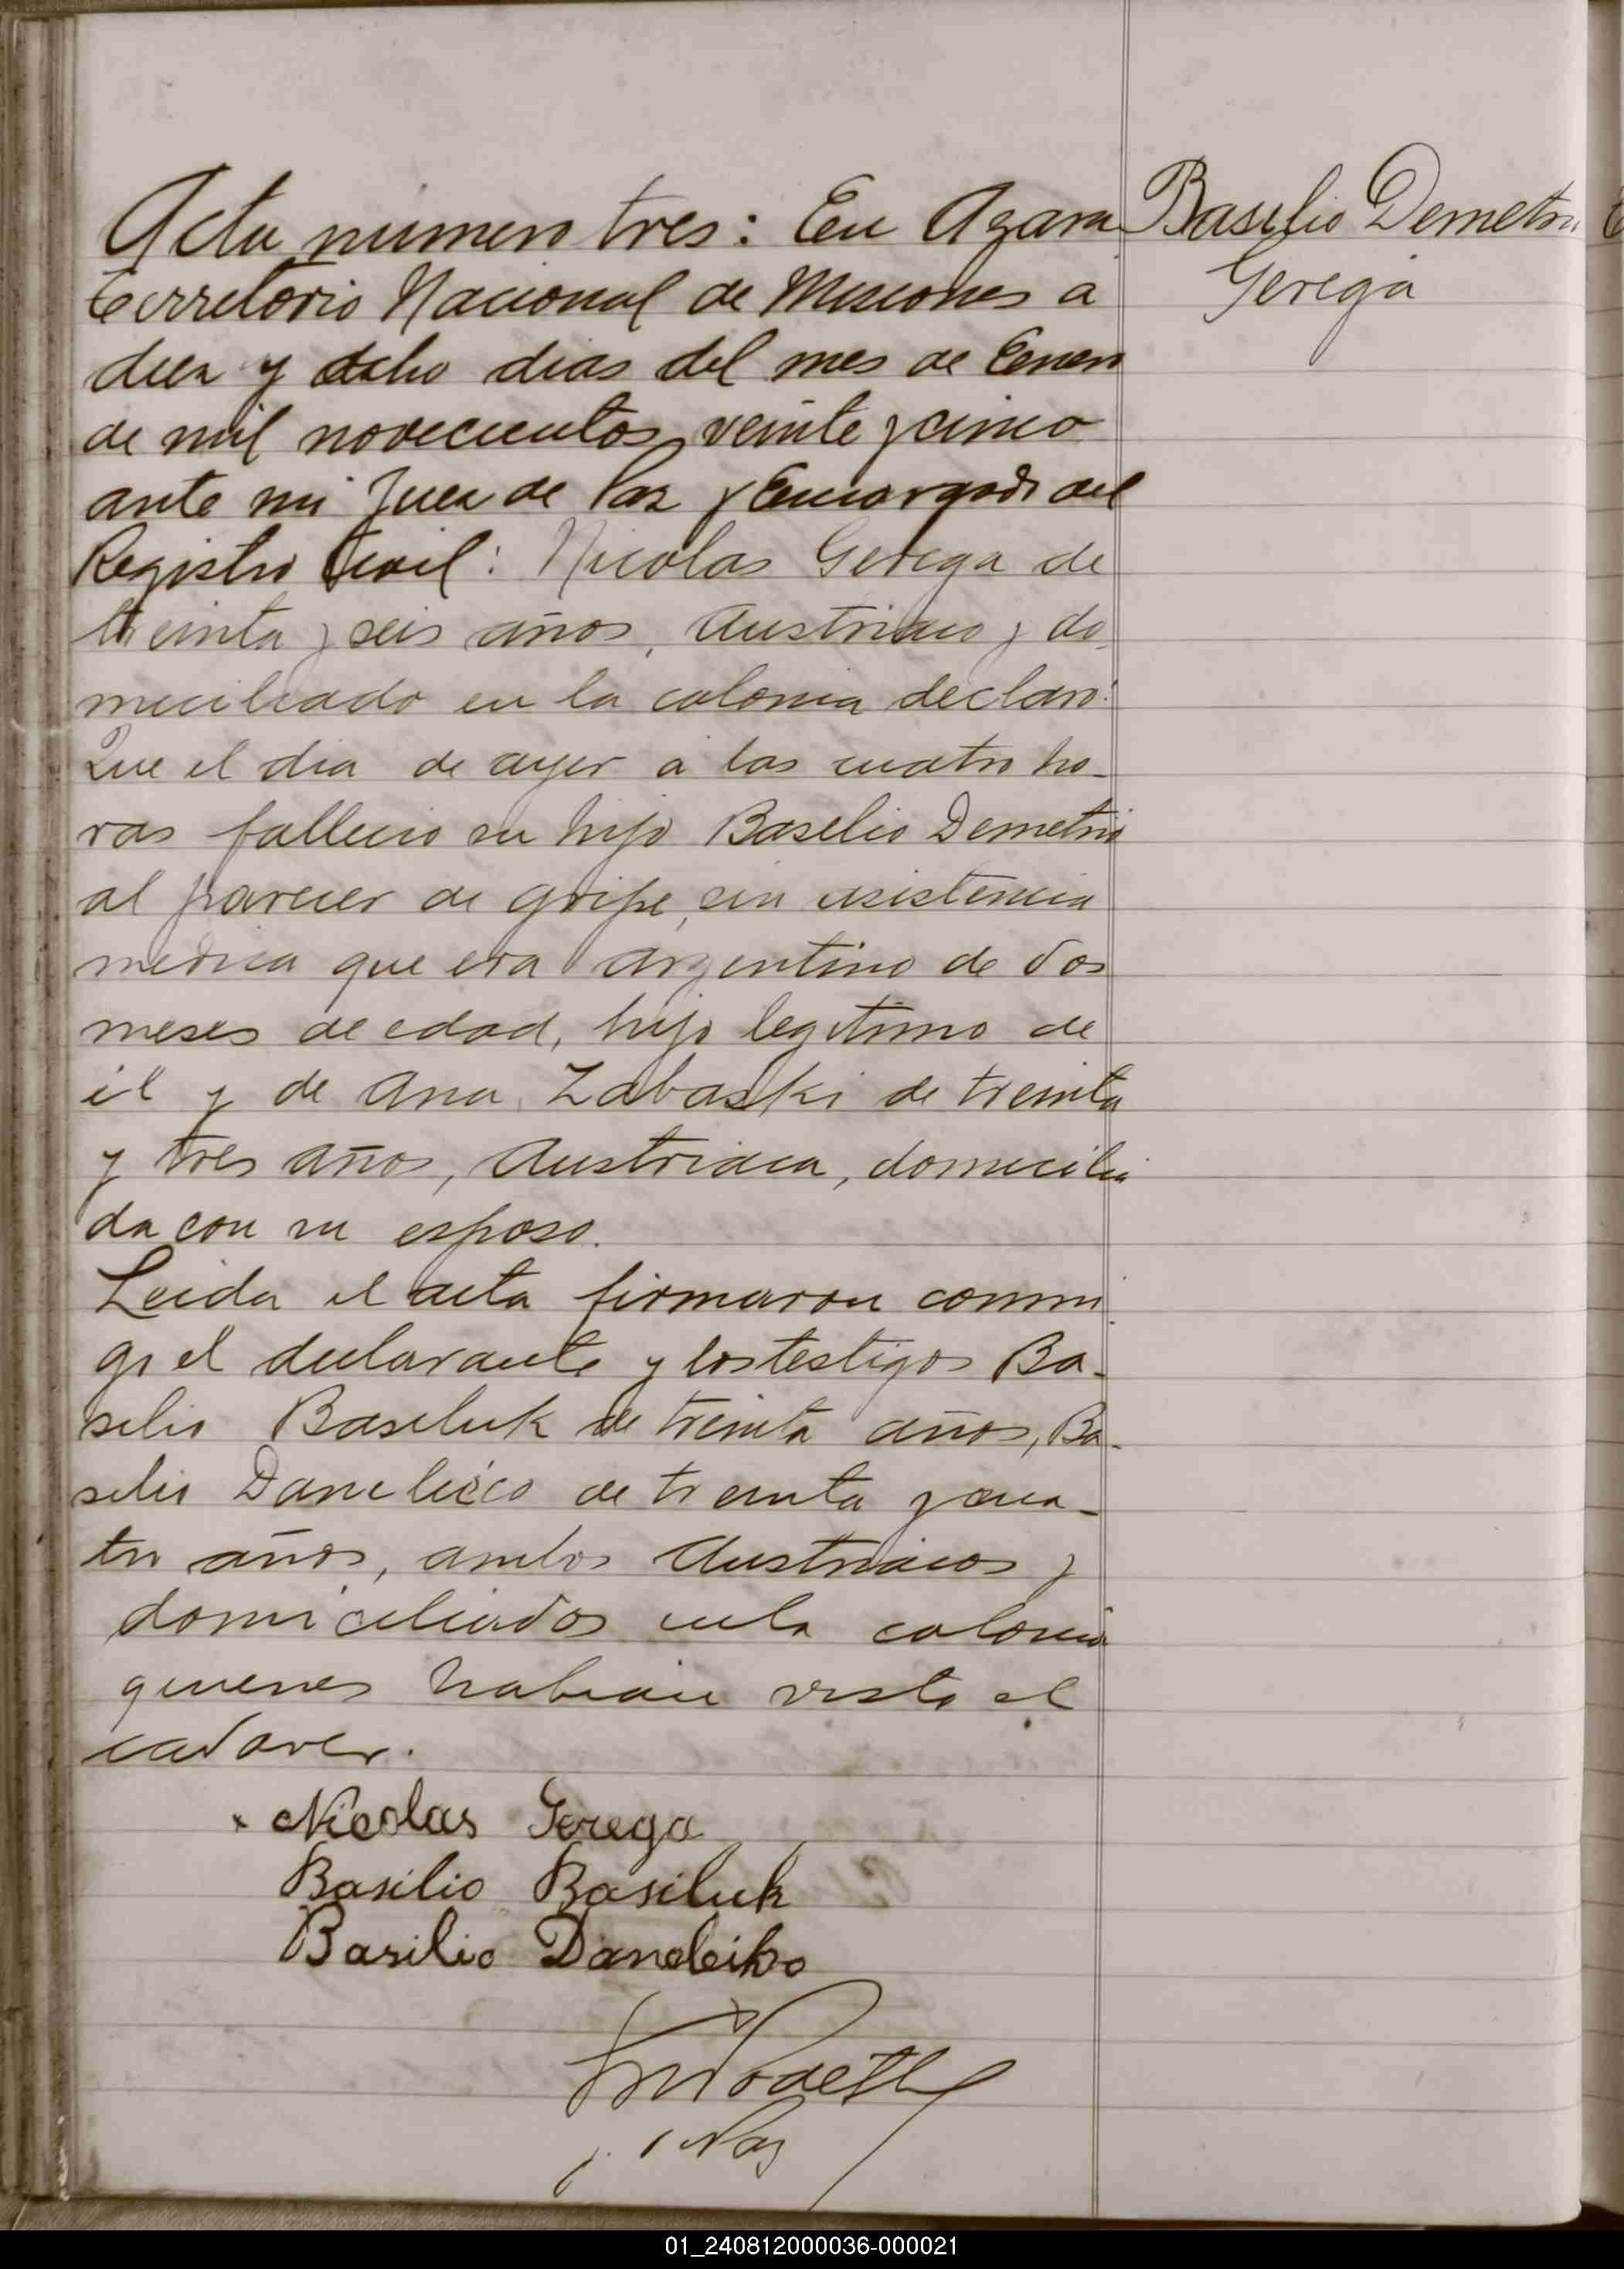 Acta numero tres: En Azara
territorio Nacional de Misiones a
diez y ocho dias del mes de Enero
de mil novecientos veinte y cinco
ante mi Juez de Paz y Encargado del
Registro Civil: Nicolas Gerega de
treinta y seis años, Austriaco y do-
miciliado en la colonia declaró:
Que el dia de ayer a las cuatro ho-
ras fallecio su hijo Baselio Demetrio
al parecer de gripe, sin asistencia
medica que era argentino de dos
meses de edad, hijo legitimo de
él y de Ana Zabaski de treinta
y tres años, Austriaca, domicilia
da con su esposo.
Leida el acta firmaron conmi
go el declarante y los testigos Ba-
silio Basiluk de treinta años, Ba-
silio de treinta y cua-
tro años, ambos Austriacos y
domiciliados en la colonia
quienes habian visto el
cadaver.
Nicolas Gerega
Basilio Basiluk
Basilio Daneleiko
j. Paz
Basilio Demetrio
Gerega
01_240812000036-000021